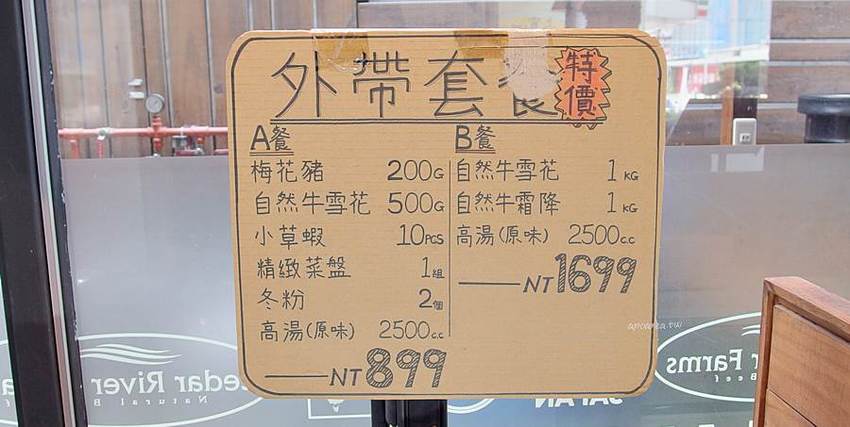 外帶套餐 特價
A餐
梅花豬 200G
自然牛雪花 500G
小草蝦 10PCS
精緻菜盤 1組
冬粉 2個
高湯(原味) 2500c.c
NT899
B餐
自然牛雪花 1KG
自然牛霜降 1KG
高湯(原味) 2500c.c
NT1699
Cedar River
Natural B
r Farms
Beef
JAPAN